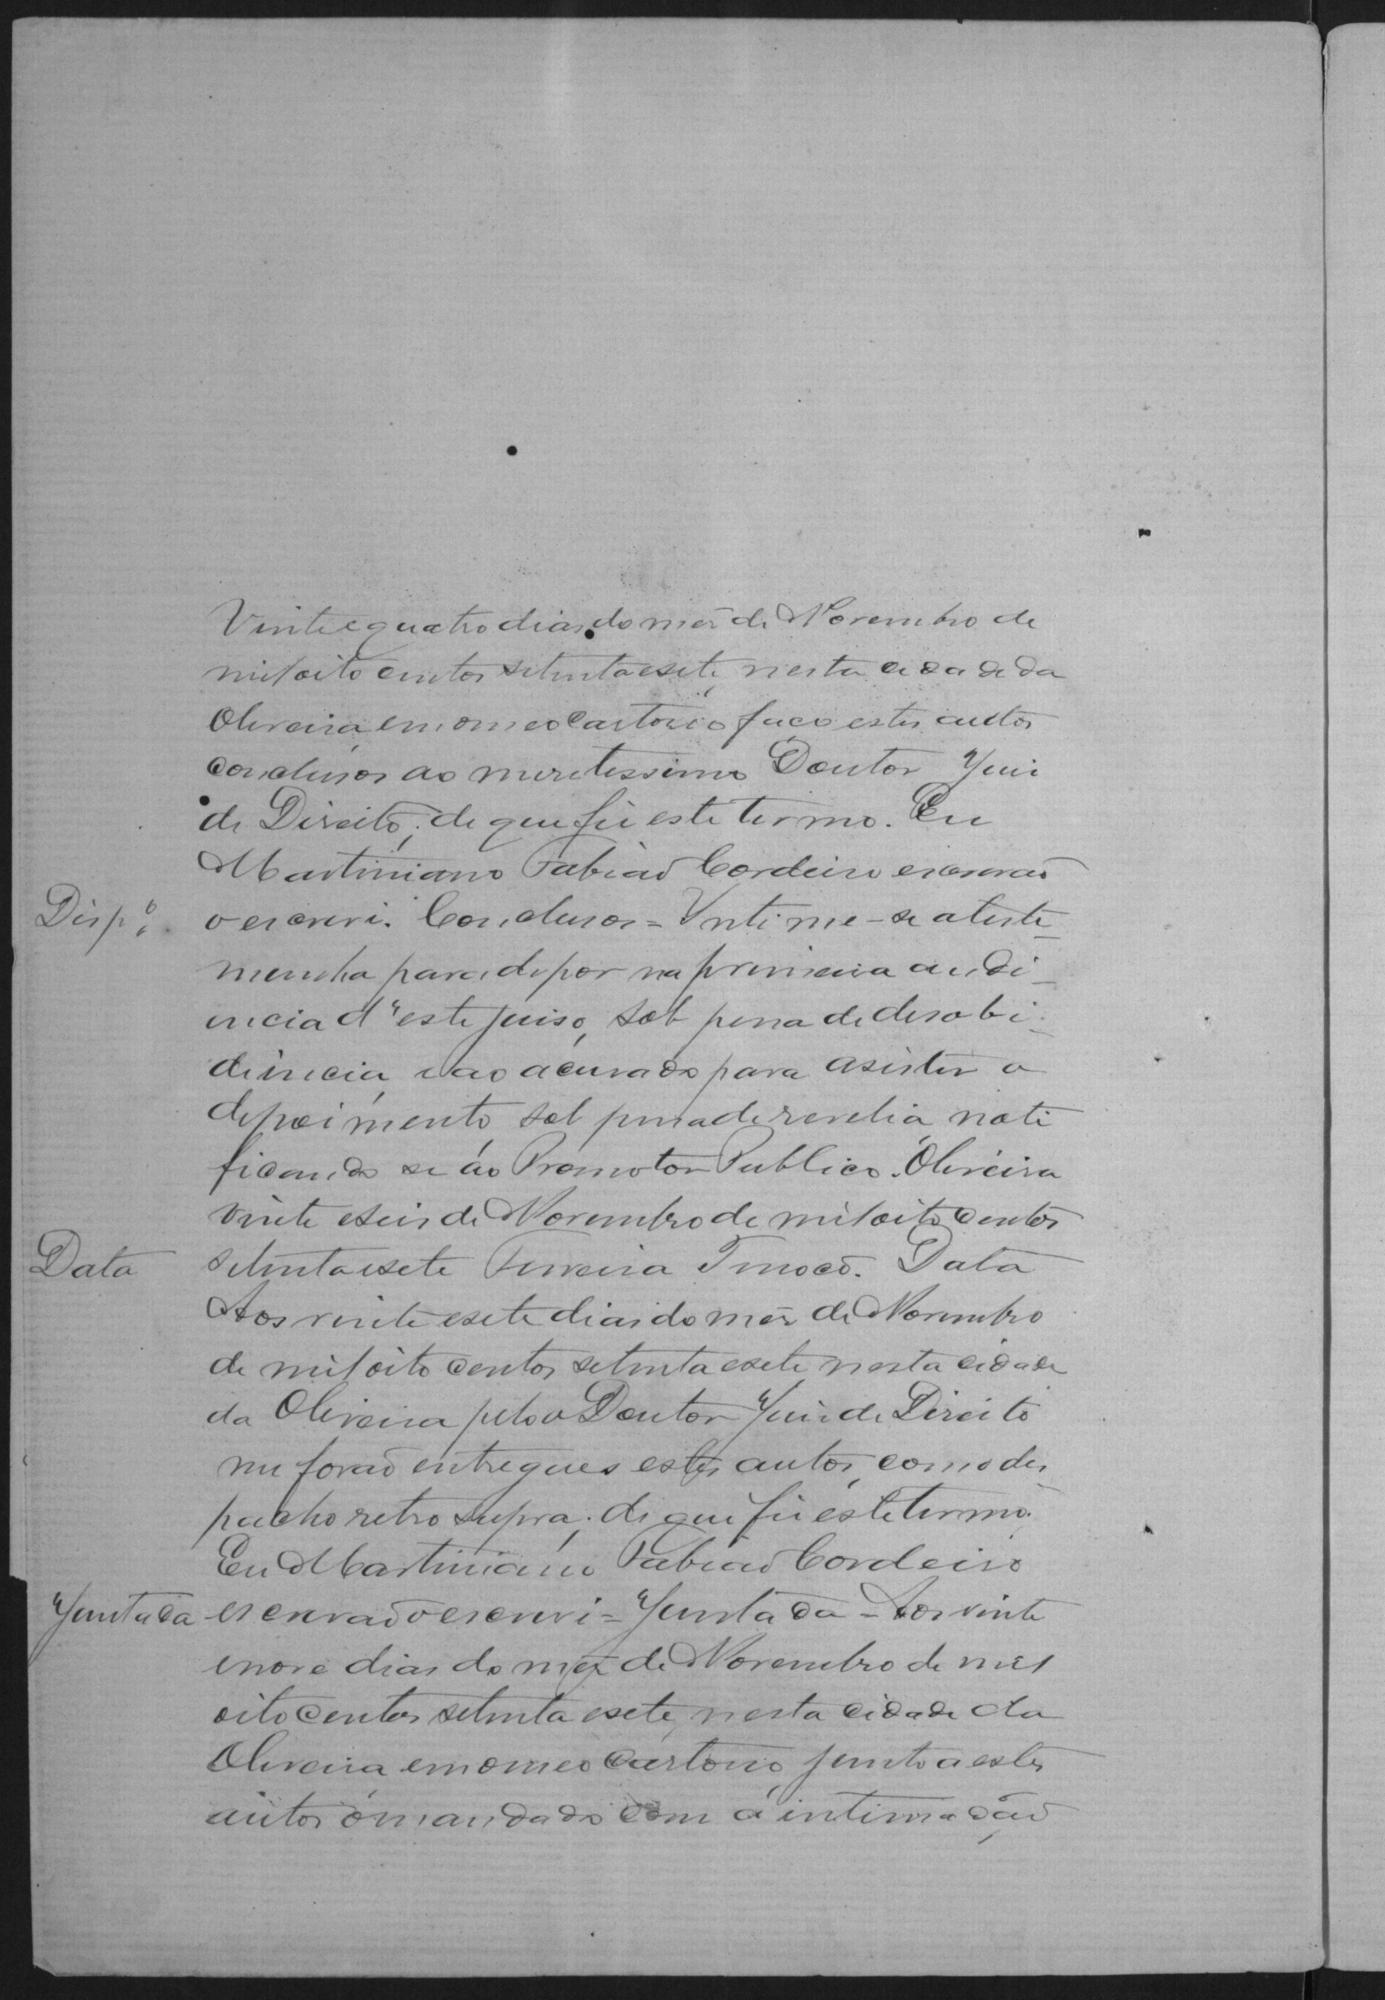 Vinte e quatro dias do mez de Novembro de
mil oito centos setenta e sete, nesta cidade da
Oliveira, em o meo Cartorio faço estes autos
conclusos ao meretissimo Doutor Juiz
de Direito; de que fiz este termo. Eu
Martiniano Fabiaõ Cordeiro escrivaõ
Disp.º o escrevi. Conclusos = Intime-se a teste-
munha para depor na primeira audi-
encia d'este juiso, sob pena de desobi-
diencia, e ao acusado para asistir o
depoimento sob pena de revelia, noti
ficando se ao Promotor Publico. Oliveira
vinte e seis de Novembro de mil oito centos
Data setenta e sete Ferreira Tinoco. Data
Aos vinte e sete dias do mez de Novembro
de mil oito centos setenta e sete, nesta cidade
da Oliveira pelo o Doutor Juiz de Direito
me foraõ entregues estes autos, com o des
pacho retro supra; de que fiz este termo.
Eu Martiniano Fabiaõ Cordeiro
Juntada escrivaõ o escrevi = Juntada = Aos vinte
e nove dias do mez de Novembro de mil
oito centos setenta e sete, nesta cidade da
Oliveira, em o meo Cartorio, junto a estes
autos o mandado com a intimaçaõ